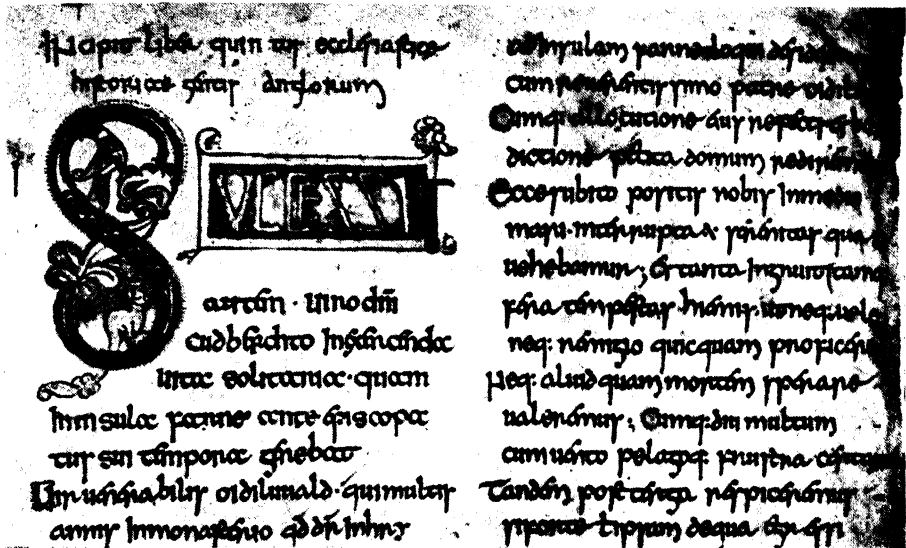 Incipit liber quintus ecclesiastice
historiae gentis anglorum
SVCCESSIT
autem · uiro dni
cudbercto in exercenda
uitae solitariae · quam
in insula farne ante episcopa
tus sui tempora gerebat
Uir uenerabilis oidiluuald · qui multis
annis in monasterio
ad insulam farne loqui
cum reuerentissimo patre
Cumq: allocutione eius refecti
dictione petita domum
Ecce subito positis nobis in medio
maris · interrupta serenitas qua
uehebamur ; et tanta ingruit tam
fera tempestas hiemis · ut neq: uelo
neq: remigio quicquam proficere
Neq: aliud quam mortem sperare
ualeremus ; Cumq: diu multum
cum uento pelagoq: frustra
Tandem post terga respicientes
si forte ipsum de qua